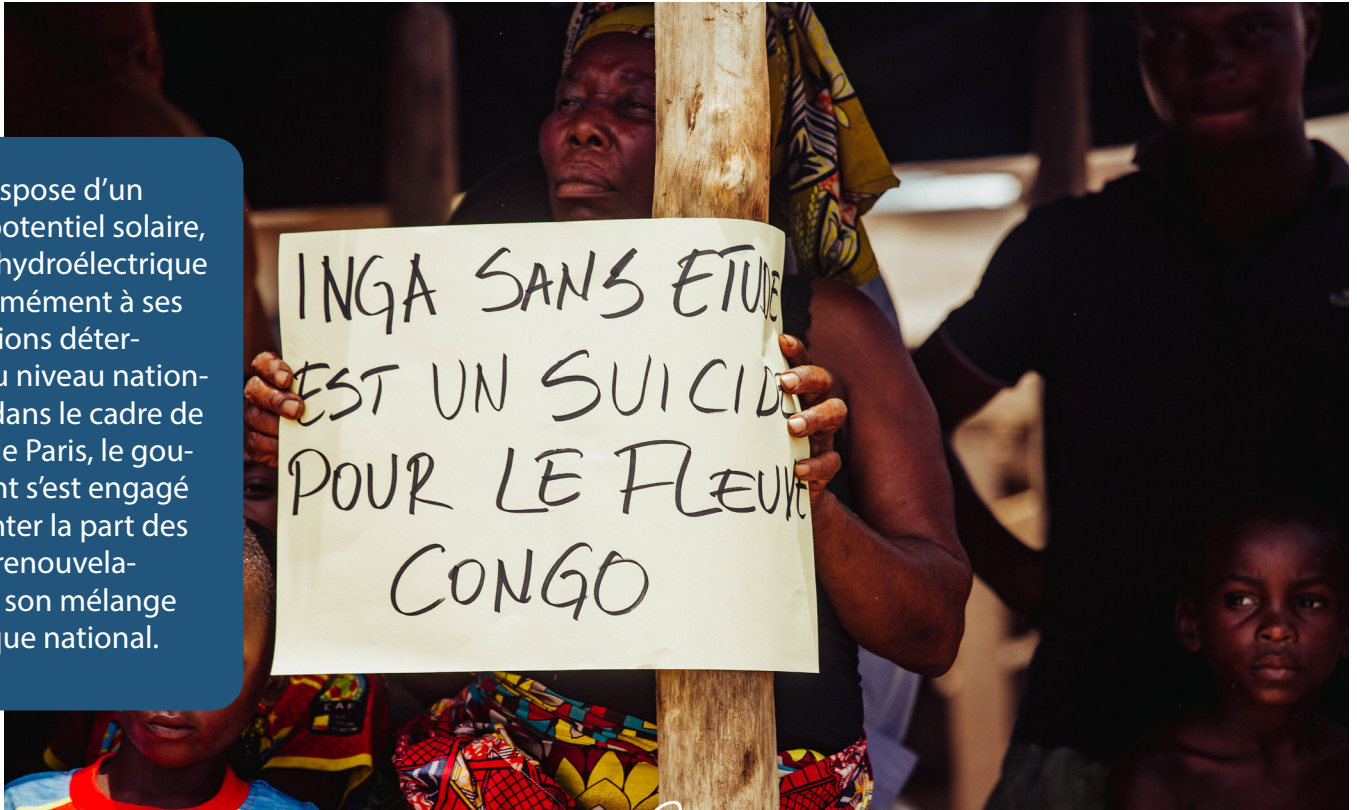 spose d'un
potentiel solaire,
hydroélectrique
mément à ses
ions déter-
u niveau nation-
dans le cadre de
e Paris, le gou-
nt s'est engagé
nter la part des
renouvela-
son mélange
que national.
INGA SANS ETUDE
EST UN SUICIDE
POUR LE FLEUVE
CONGO
CAF